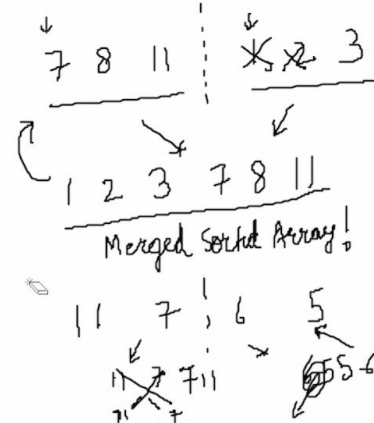 7 8 11 3
1 2 3 7 8 11
Merged Sortd Array!
11 7 6 5
11 7 7 11 5 5-6